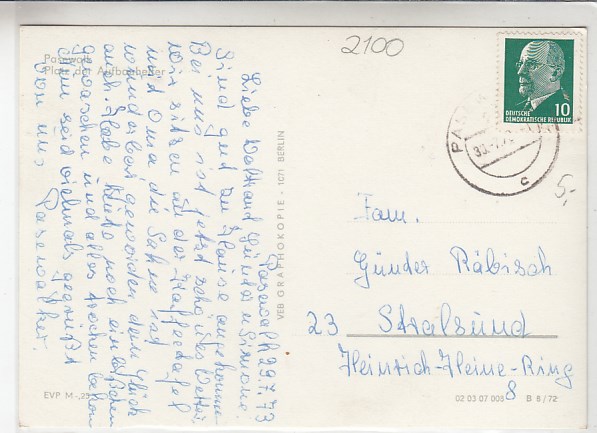 Pasewalk
Platz der Aufbauhelfer
Pasewalk 29.7.73
Liebe Waltraud Günter u. Simone!
Sind gut zu Hause angekommen
Bei uns ist jetzt schönes Wetter
Wir sitzen an der Kaffeetafel
und Oma die Sahne ist
wunderbar geworden dem Glück
auch. Habe heute noch ein bißchen
gewaschen und alles trocken bekom
Nun seid vielmals gegrüßt
von uns
Pasewalker.
VEB GRAPHOKOPIE · 1071 BERLIN
2100
10
DEUTSCHE
DEMOKRATISCHE REPUBLIK
c
5,-
Fam.
Günder Räbisch
23 Stralsund
Heinrich-Heine-Ring
8
EVP M -,25
02 03 07 008 B 8/72